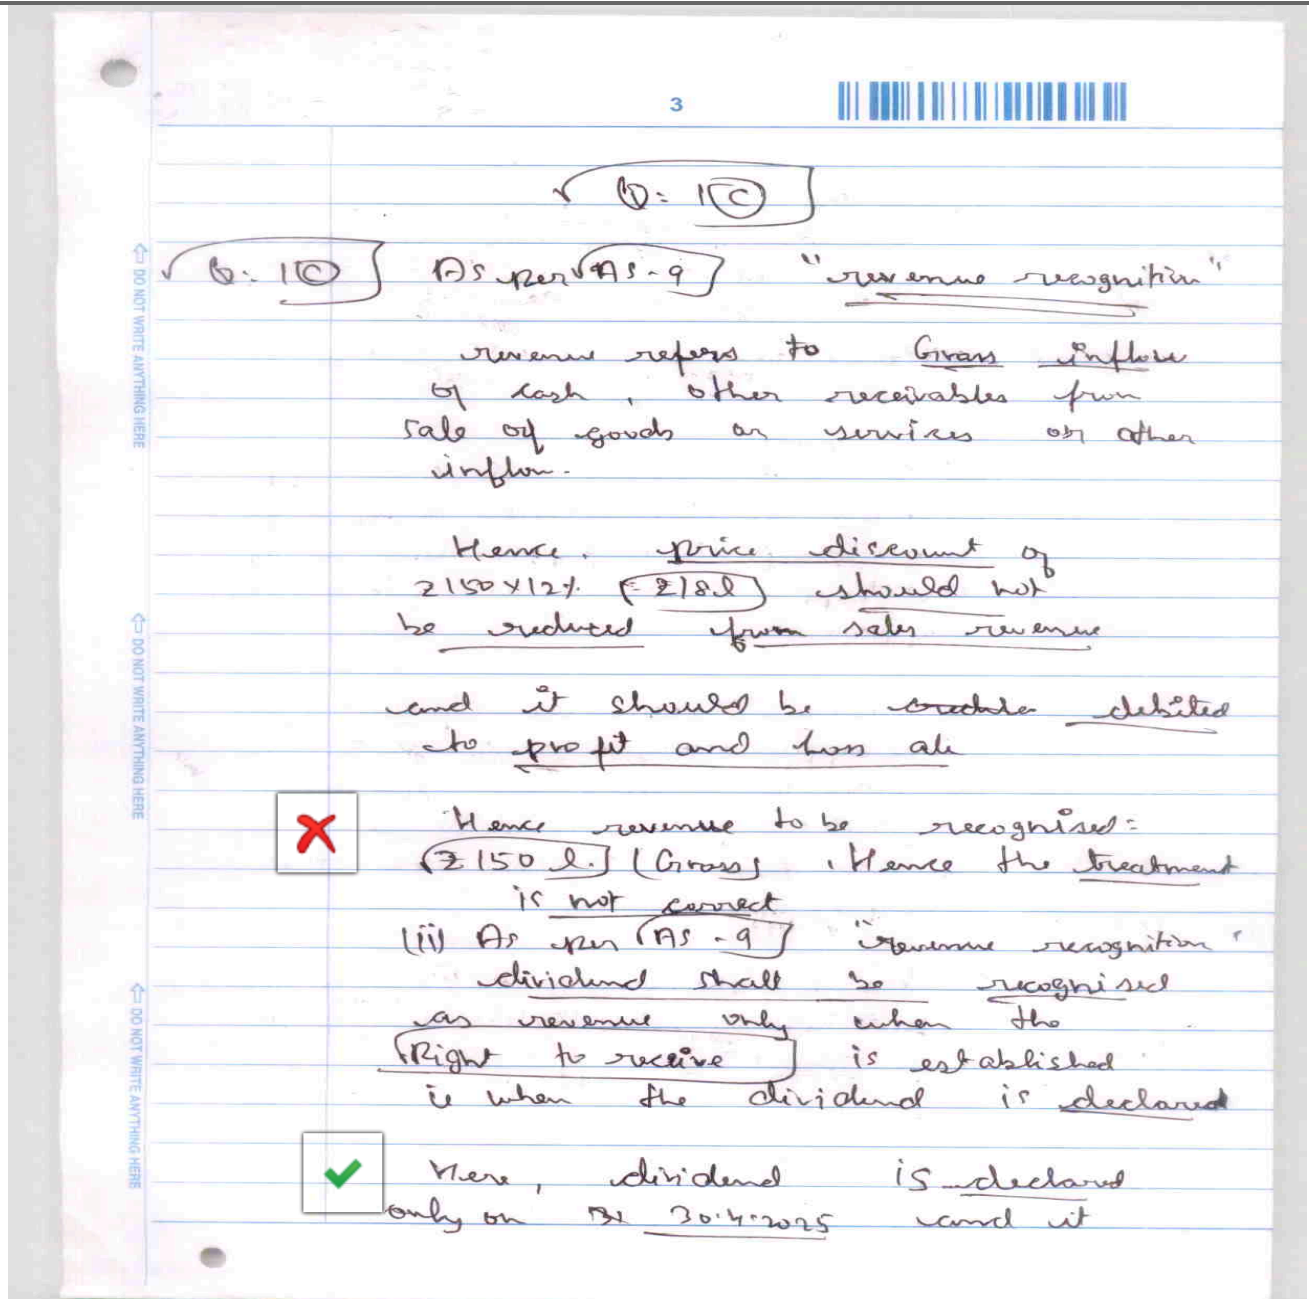 3
Q: 1(C)
Q: 1(C) As per AS-9 "revenue recognition"
revenue refers to Gross inflow
of cash, other receivables from
sale of goods or services or other
inflow.
Hence, price discount of
₹150×12% (=₹18l) should not
be reduced from sales revenue
and it should be debited
to profit and loss a/c
Hence revenue to be recognised:
₹150 l. (Gross). Hence the treatment
is not correct
(ii) As per AS-9 "revenue recognition"
dividend shall be recognised
as revenue only when the
Right to receive is established
ie when the dividend is declared
Here, dividend is declared
only on 30.4.2025 and it
DO NOT WRITE ANYTHING HERE
DO NOT WRITE ANYTHING HERE
DO NOT WRITE ANYTHING HERE